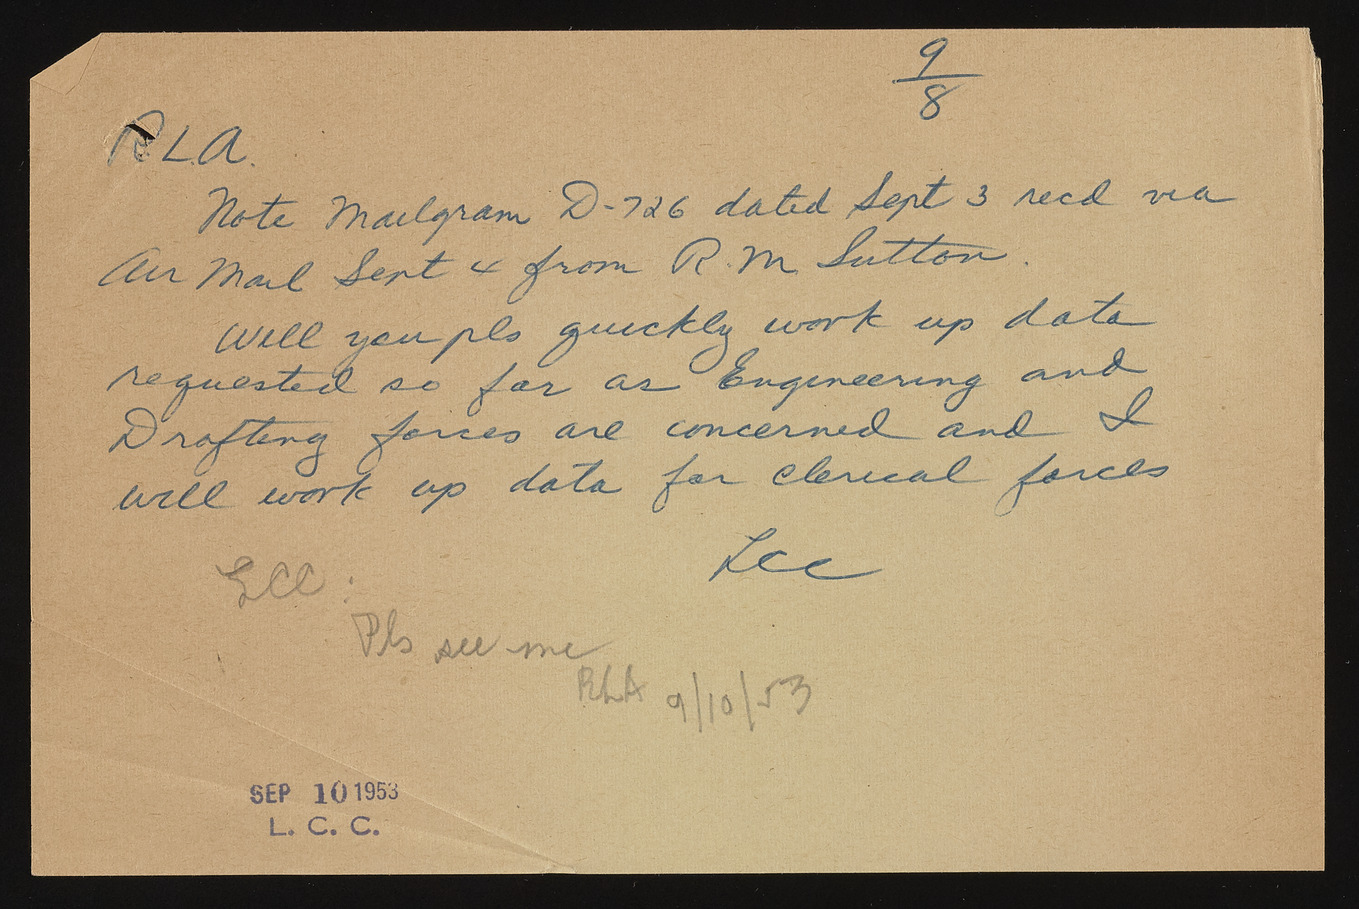 9
8
R.L.A.
Note Mailgram D-726 dated Sept 3 recd via
Air Mail Sept 4 from R.M. Sutton.
Will you pls quickly work up data
requested so far as Engineering and
Drafting forces are concerned and I
will work up data for clerical forces
LCC
LCC:
Pls see me
RLA 9/10/53
SEP 10 1953
L. C. C.